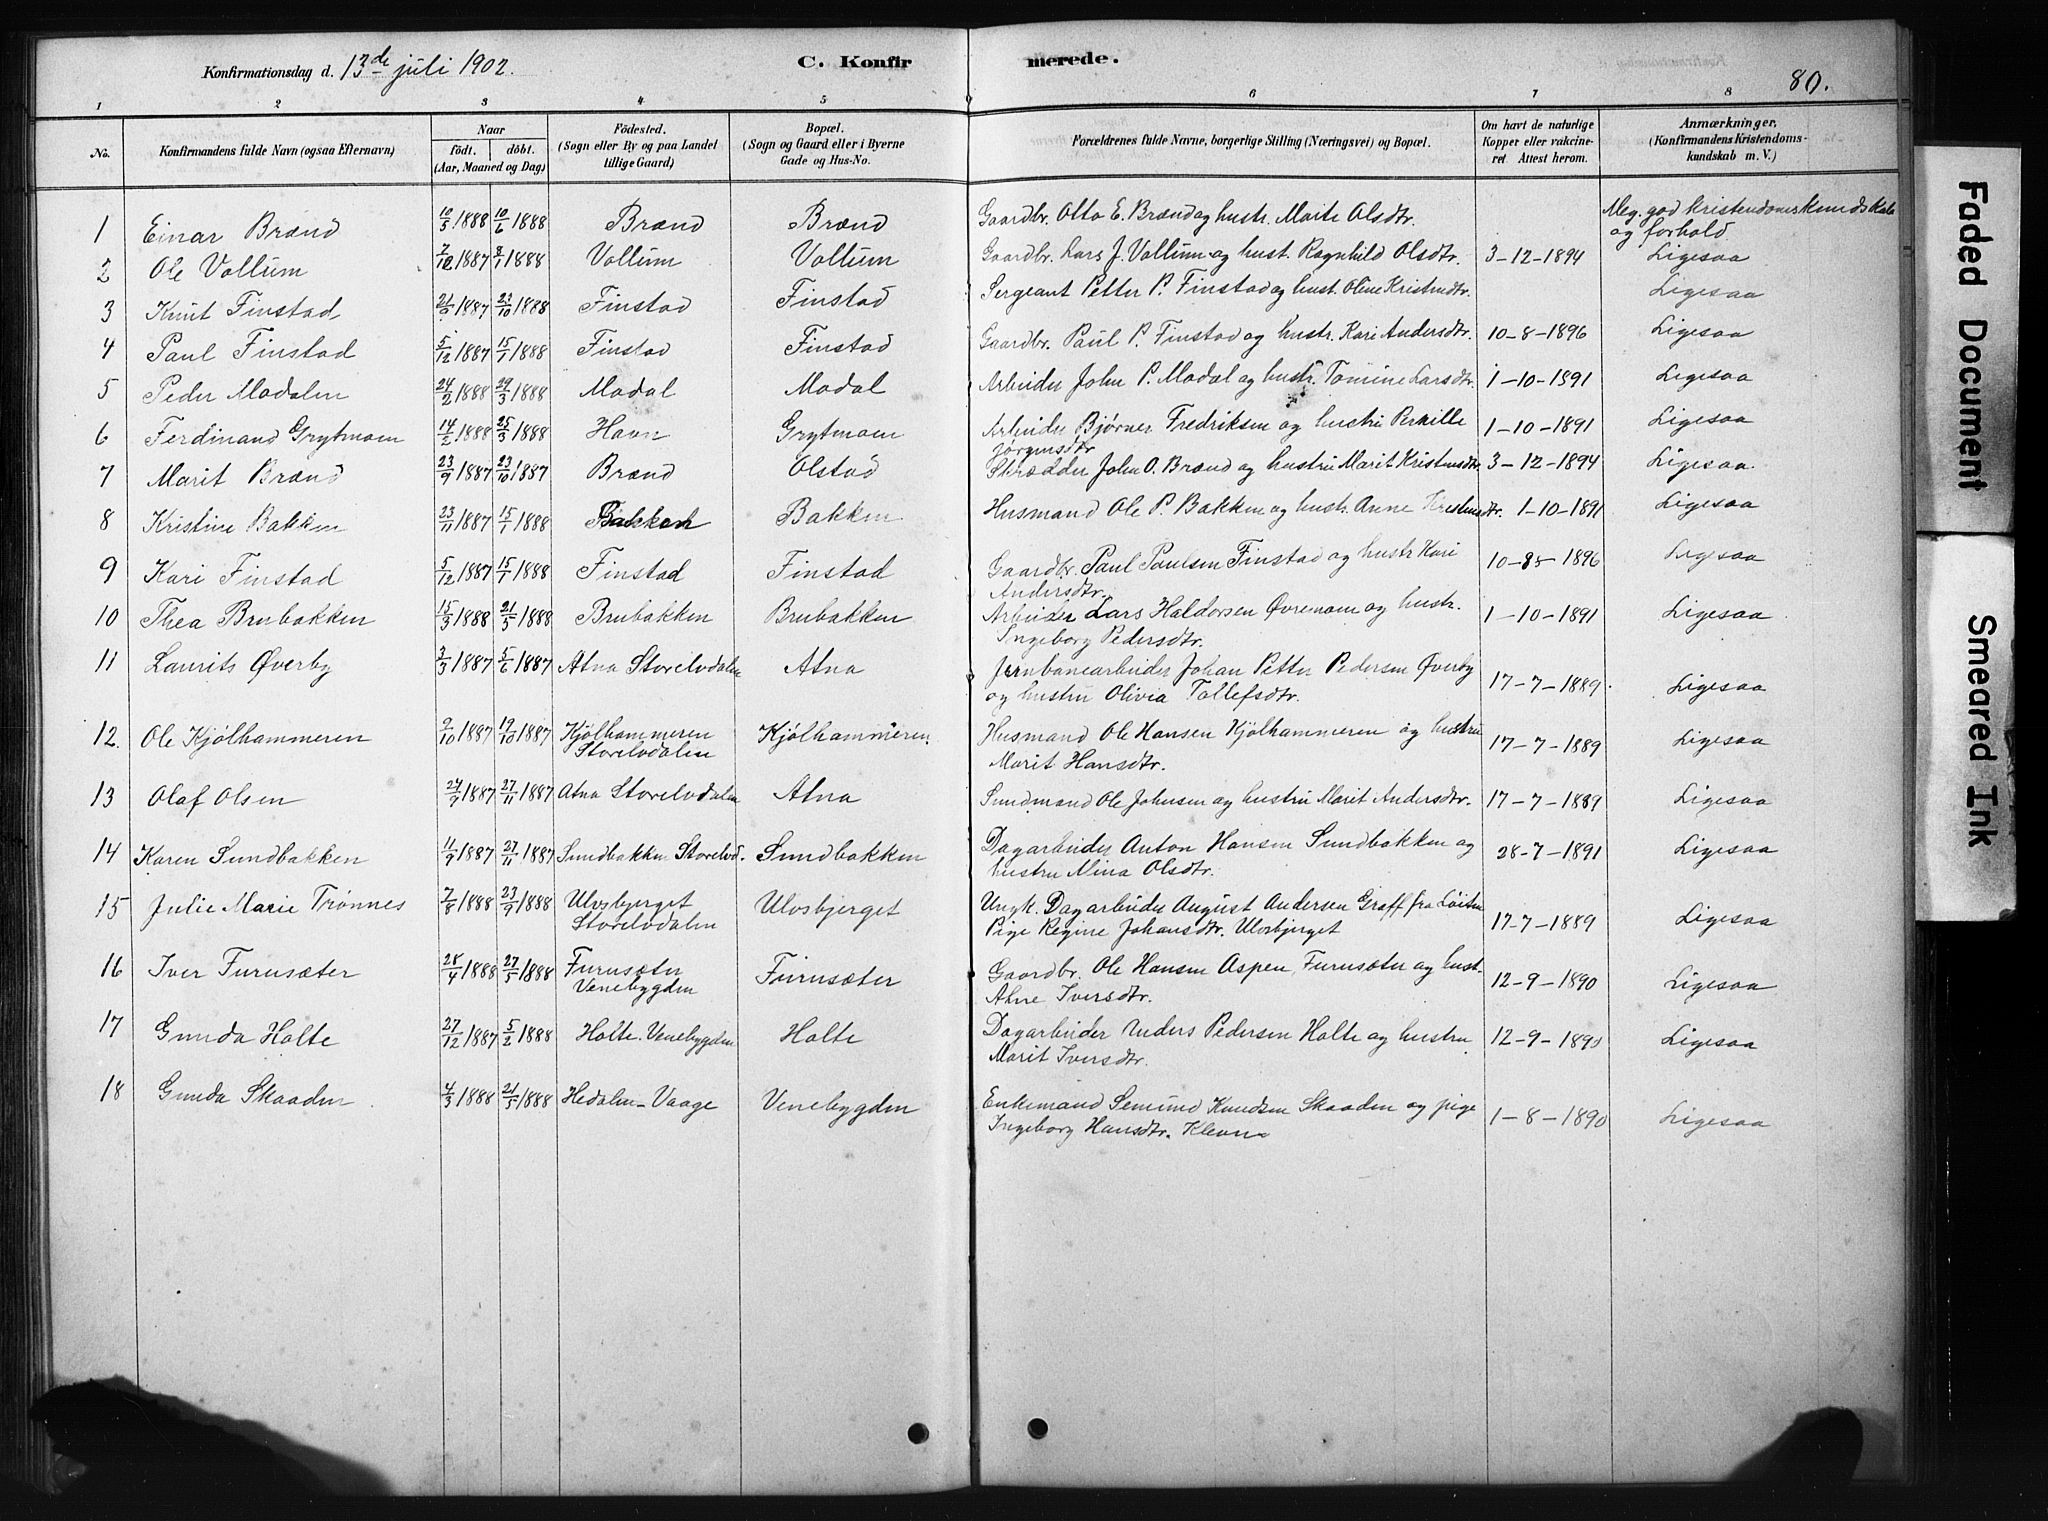 Konfirmationsdag d. 13de juli 1902. C. Konfirmerede. 80.
1 2 3 4 5 6 7 8
No. Konfirmandens fulde Navn (ogsaa Efternavn) Naar Födt. döbt. (Aar, Maaned og Dag) Födested. (Sogn eller By og paa Landet tillige Gaard) Bopæl. (Sogn og Gaard eller i Byerne Gade og Hus-No. Forældrenes fulde Navne, borgerlige Stilling (Næringsvei) og Bopæl. Om havt de naturlige Kopper eller vakcineret. Attest herom. Anmærkninger. (Konfirmandens Kristendomskundskab m. V.)
1 Einar Brænd 10/5 1888 10/6 1888 Brænd Brænd Gaardbr. Otto E. Brænd og hustr. Marte Olsdtr. Meg. god kristendomskundskab og forhold
2 Ole Vollum 7/12 1887 8/1 1888 Vollum Vollum Gaardbr. Lars J. Vollum og hust. Ragnhild Olsdtr. 3-12-1894 Ligesaa
3 Knut Finstad 21/9 1887 23/10 1888 Finstad Finstad Sergeant Petter P. Finstad og hust. Oline Kristensdtr. Ligesaa
4 Paul Finstad 5/12 1887 15/1 1888 Finstad Finstad Gaardbr. Paul P. Finstad og hustr. Kari Andersdtr. 10-8-1896 Ligesaa
5 Peder Modalen 24/2 1888 29/3 1888 Modal Modal Arbeider John P. Modal og hustr. Tomine Larsdtr. 1-10-1891 Ligesaa
6 Ferdinand Grytmoen 14/2 1888 25/3 1888 Havn Grytmoen Arbeider Bjørner Fredriksen og hustru Pernille Jørgensdtr 1-10-1891 Ligesaa
7 Marit Brænd 23/9 1887 23/10 1887 Brænd Olstad Skrædder John O. Brænd og hustru Marit Kristensdtr. 3-12-1894 Ligesaa.
8 Kristine Bakken 23/11 1887 15/1 1888 Bakken Bakken Husmand Ole P. Bakken og hustr. Anne Kristensdtr. 1-10-1891 Ligesaa
9 Kari Finstad 5/12 1887 15/1 1888 Finstad Finstad Gaardbr. Paul Paulsen Finstad og hustr Kari Andersdtr. 10-8-1896 Ligesaa
10 Thea Brubakken 15/3 1888 21/5 1888 Brubakken Brubakken Arbeider Lars Haldorsen Øvremoen og hustr. Ingeborg Pedersdtr. 1-10-1891 Ligesaa
11 Laurits Øverby 3/3 1887 5/6 1887 Atna Storelvdalen Atna Jernbanearbeider Johan Petter Pedersen Øverby og hustru Olivia Tollefsdtr. 17-7-1889. Ligesaa
12. Ole Kjølhammeren 9/10 1887 19/10 1887 Kjølhammeren Storelvdalen Kjølhammeren. Husmand Ole Hansen Kjølhammeren og hustru Marit Hansdtr. 17-7-1889 Ligesaa
13 Olaf Olsen 24/7 1887 27/11 1887 Atna Storelvdalen Atna Sundmand Ole Johnsen og hustru Marit Andersdtr. 17-7-1889 Ligesaa
14 Karen Sundbakken 11/9 1887 27/11 1887 Sundbakken Storelvd. Sundbakken Dagarbeider Anton Hansen Sundbakken og hustru Nina Olsdtr. 28-7-1891 Ligesaa
15 Julie Marie Trønnes 7/8 1888 23/9 1888 Ulvsbjerget Storelvdalen Ulvsbjerget Ungk. Dagarbeider August Andersen Graff fra Løiten Pige Regine Johansdtr. Ulvsbjerget 17-7-1889 Ligesaa
16 Iver Furusæter 28/4 1888 27/5 1888 Furusæter Venebygden Furusæter Gaardbr. Ole Hansen Aspen, Furusæter og hust. Anne Iversdtr. 12-9-1890 Ligesaa
17 Gunda Holte 27/12 1887 5/2 1888 Holte. Venebygden Holte Dagarbeider Anders Pedersen Holte og hustru Marit Iversdtr. 12-9-1890 Ligesaa
18 Gunda Skaaden 4/3 1888 21/5 1888 Hedalen-Vaage Venebygden Enkemand Semund Knudsen Skaaden og pige Ingeborg Hansdtr. Klevne 1-8-1890 Ligesaa
Faded Document
Smeared Ink